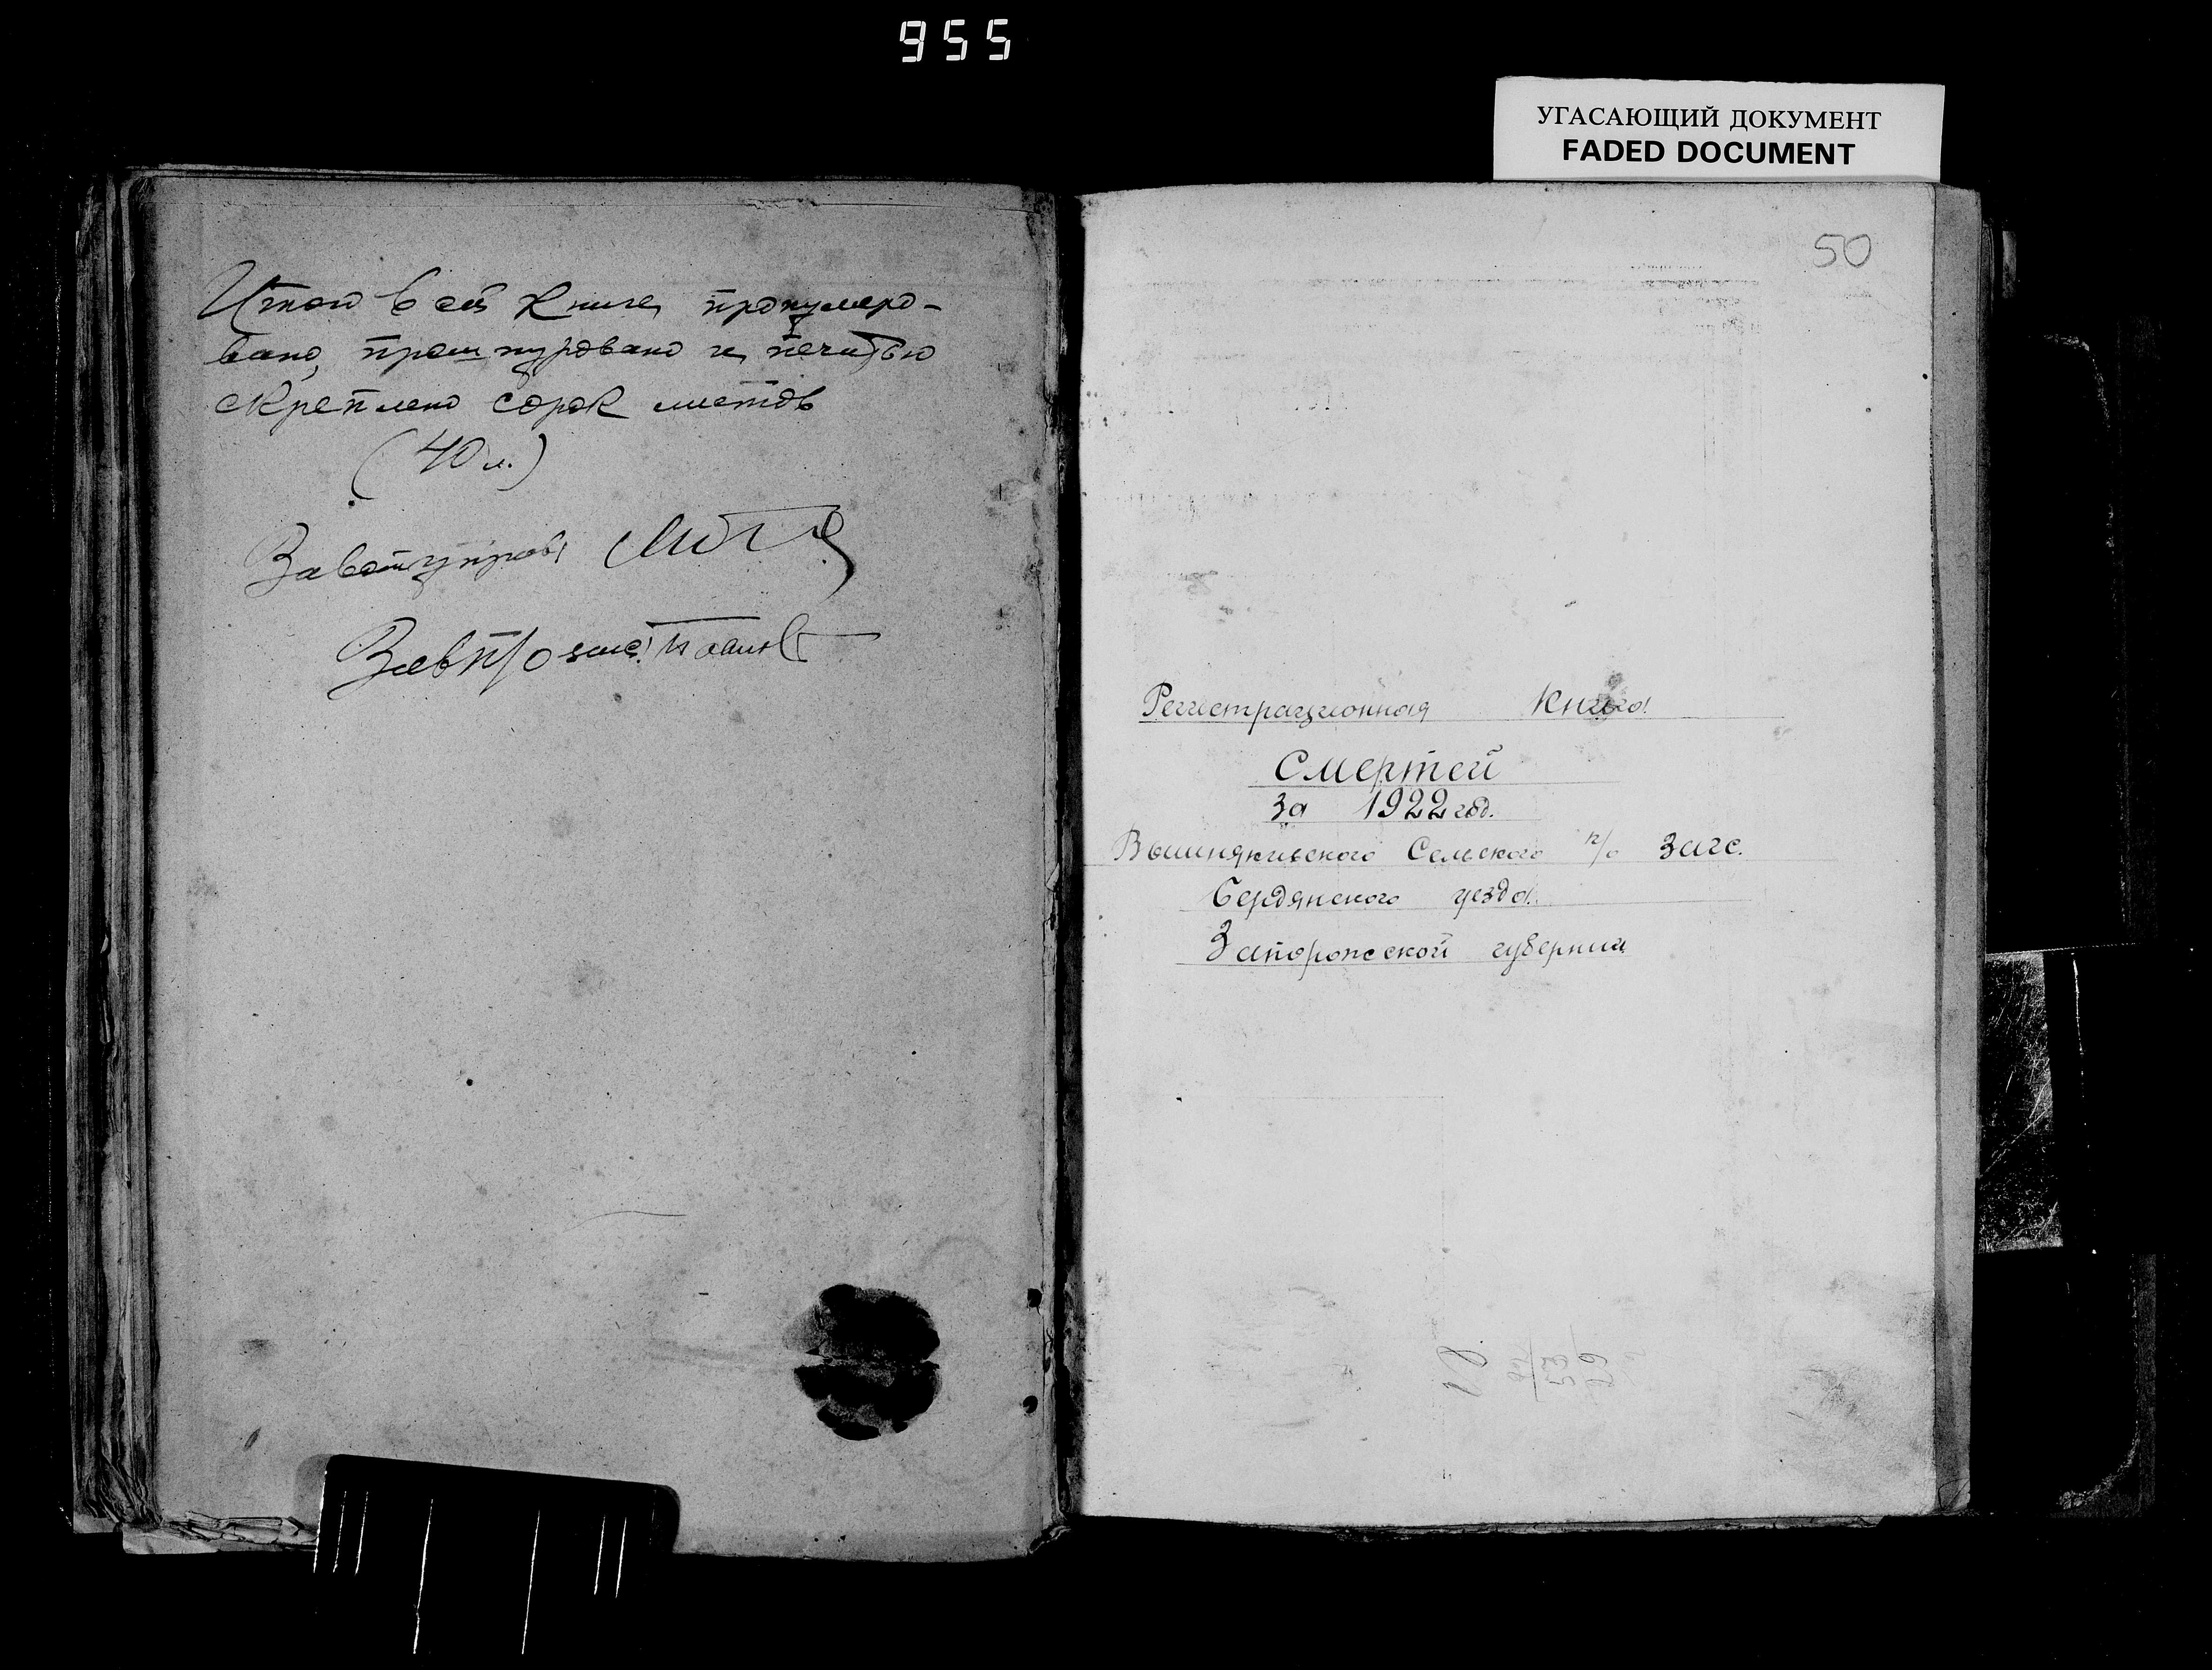 955
УГАСАЮЩИЙ ДОКУМЕНТ
FADED DOCUMENT
Итого в сей книге пронумеро-
вано, прошнуровано и печатью
скреплено сорок листов
(40 л.)
Завотуправ
Зав п/о загс
50
Регистрационная Книга
Смертей
за 1922 год.
Сельского п/о Загс.
Бердянского уезда.
Запорожской губернии